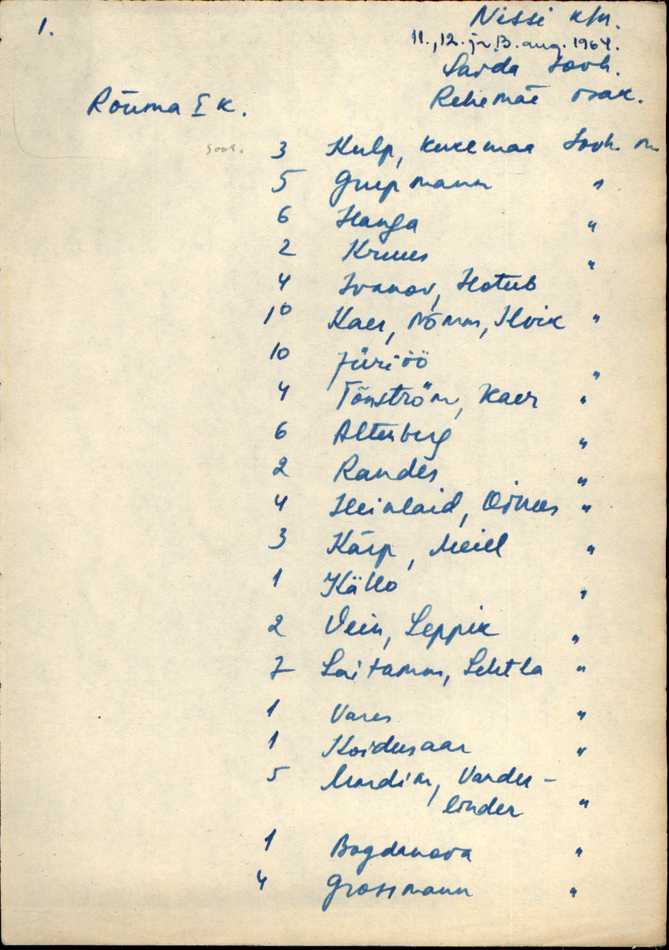 1.
Nissi khn.
11., 12. ja 13. aug. 1964.
Sarda Sovh.
Rehemäe osak.
Rõuma I k.
3 Kulp, Kukemaa Sovh. m.
5 Grupmann "
6 Hanga "
2 Kruus "
4 Ivanov, Hotub
10 Kaer, Nõmm, Ilvik "
10 Jüriöö "
4 Tõnström, Kaer "
6 Alterberg "
2 Randes "
4 Heinlaid, "
3 Kärp, Meill "
1 Källo "
2 Vein, Leppik "
7 Laitamm, Lehtla "
1 Vares "
1 Koidusaar "
5 Mardim, Vander-
linder "
1 Bogdanova "
4 Grossmann "